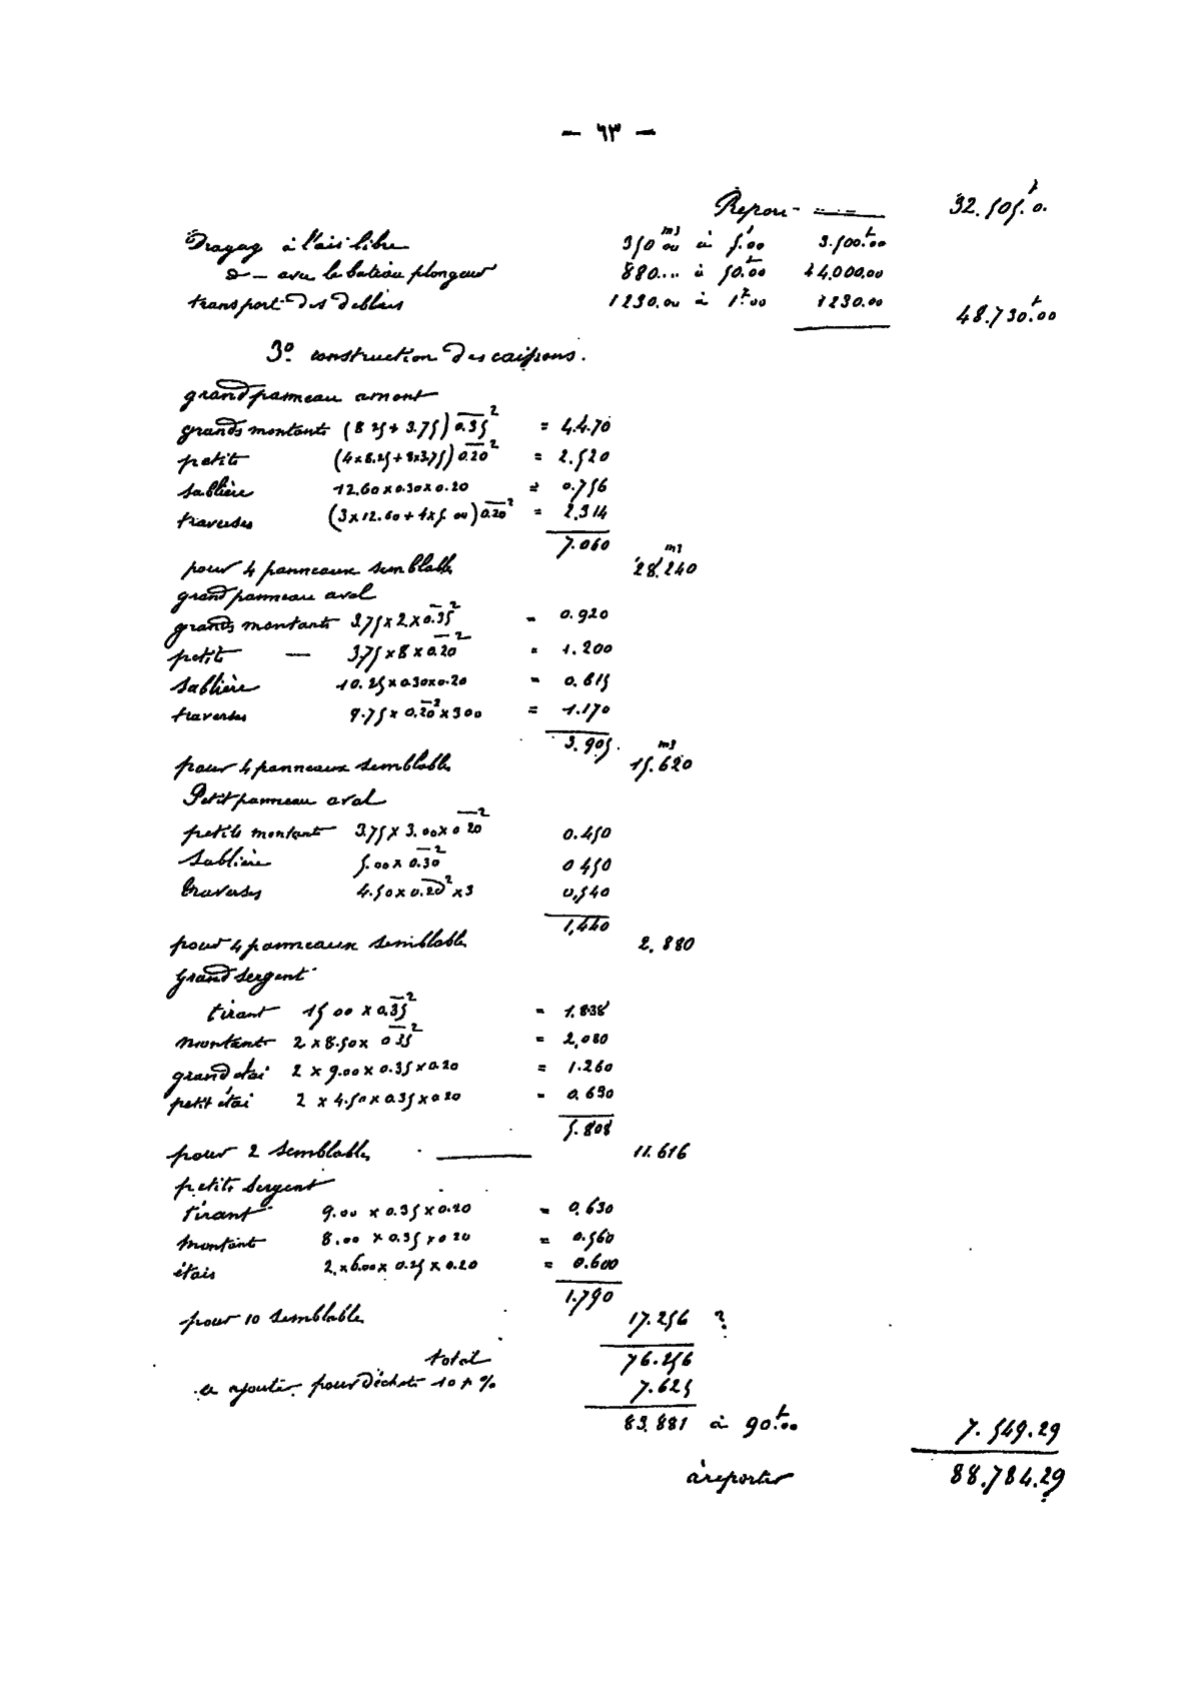 — ٦٣ —
Report 32.505.0.
Dragag à l'air libre 350 m3 00 à 5.00 3.500.00
d° — avec le bateau plongeur 880... à 50.00 44,000.00
transport des déblais 1230.00 à 1f.00 1230.00
48.730f.00
3° construction des caissons.
grand panneau amont
grands montants (8 25 + 3.75) 0.35² = 4.470
petits (4x8.25 + 8x3.75) 0.20² = 2.520
sablière 12.60 x 0.30 x 0.20 = 0.756
traverses (3 x 12.60 + 4 x 5.00) 0.20² = 2,314
7.060
pour 4 panneaux semblables 28.240 m3
grand panneau aval
grands montants 3.75 x 2 x 0.35² = 0.920
petits — 3.75 x 8 x 0.20² = 1.200
sablière 10.25 x 0.30 x 0.20 = 0.615
traverses 9.75 x 0.20² x 300 = 1.170
3.905.
pour 4 panneaux semblables 15.620 m3
Petit panneau aval
petits montants 3.75 x 3.00 x 0 20² 0.450
Sablière 5.00 x 0.30² 0 450
traverses 4.50 x 0.20² x 3 0,540
1,440
pour 4 panneaux semblables 2,880
Grand sergent
tirant 15 00 x 0.35² = 1.838
montants 2 x 8.50 x 0 35² = 2,080
grand étai 2 x 9.00 x 0.35 x 0.20 = 1.260
petit étai 2 x 4.50 x 0.35 x 0 20 = 0.630
5.808
pour 2 semblables — 11.616
petits sergent
tirant 9.00 x 0.35 x 0.20 = 0.630
montant 8.00 x 0.35 x 0 20 = 0.560
étais 2 x 6.00 x 0.25 x 0.20 = 0.600
1.790
pour 10 semblables 17.256 ?
total 76.256
à ajouter pour déchets 10 p % 7.625
83.881 à 90f.00 7.549.29
à reporter 88.784.29